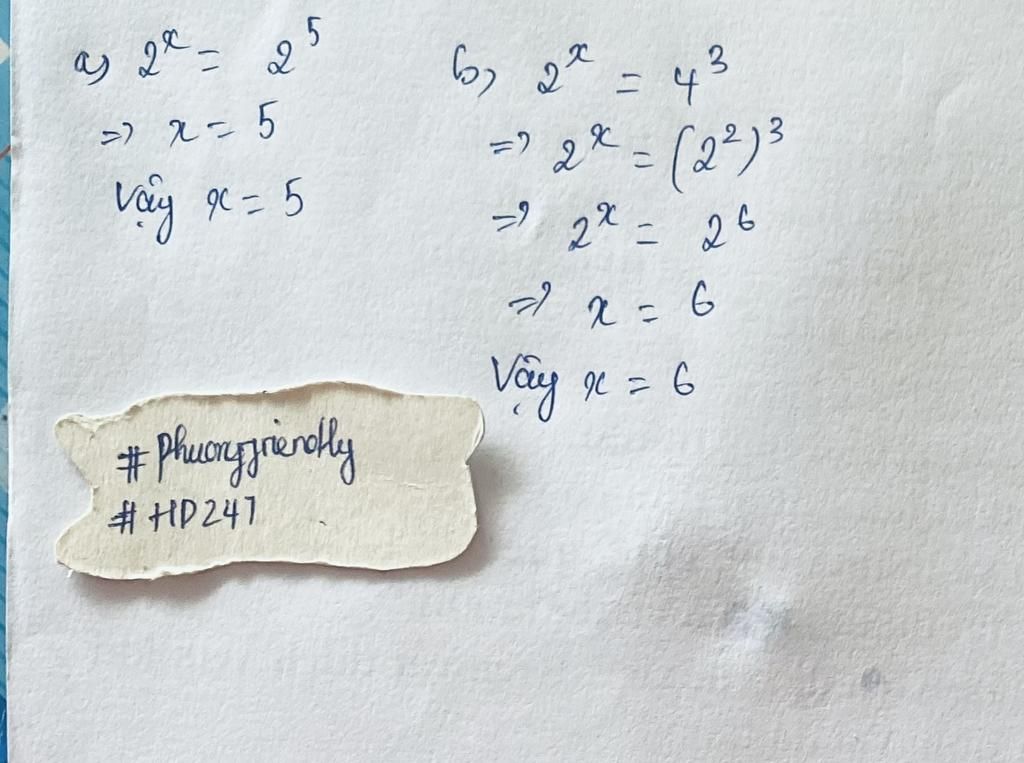 a, 2^x = 2^5
=> x = 5
Vậy x = 5
b, 2^x = 4^3
=> 2^x = (2^2)^3
=> 2^x = 2^6
=> x = 6
Vậy x = 6
# Phuongfriendly
# HD247